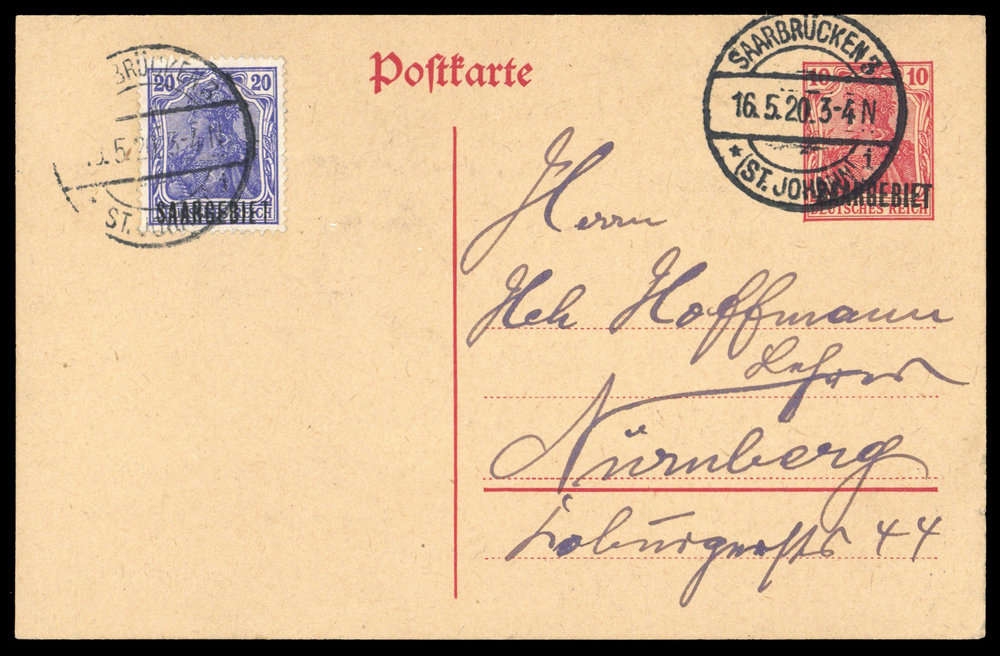 Postkarte
BRÜCKEN 3
20 20
5.2 3-4 N
SAARGEBIET
ST. JOH
SAARBRÜCKEN 3
10 10
16.5.20. 3-4 N
* (ST. JOHANN) i
SAARGEBIET
DEUTSCHES REICH
Herrn
Hch Hoffmann
Lehrer
Nürnberg
44